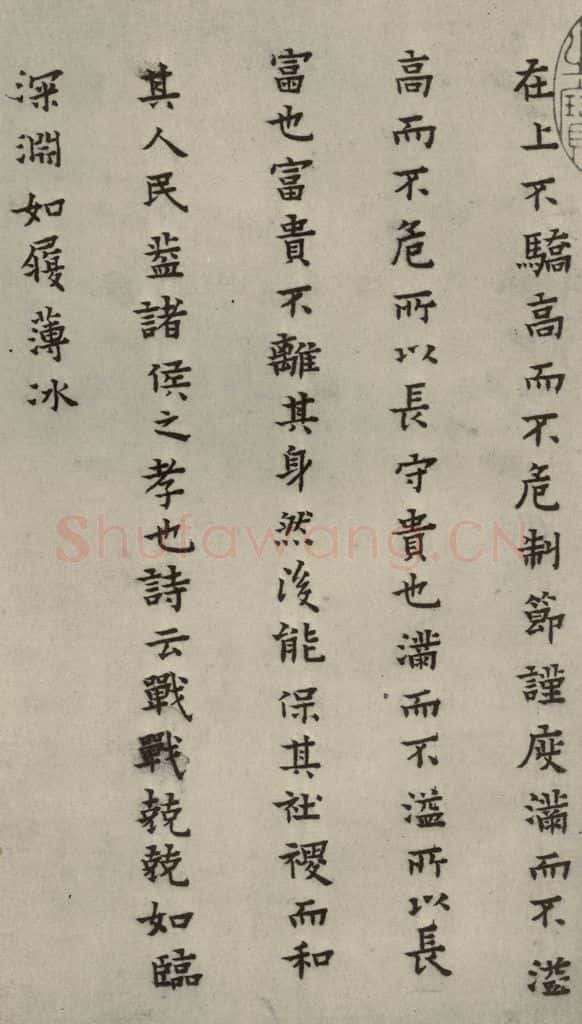 在上不驕高而不危制節謹度滿而不溢
高而不危所以長守貴也滿而不溢所以長
富也富貴不離其身然後能保其社稷而和
其人民葢諸侯之孝也詩云戰戰兢兢如臨
深淵如履薄冰
Shufawang.CN